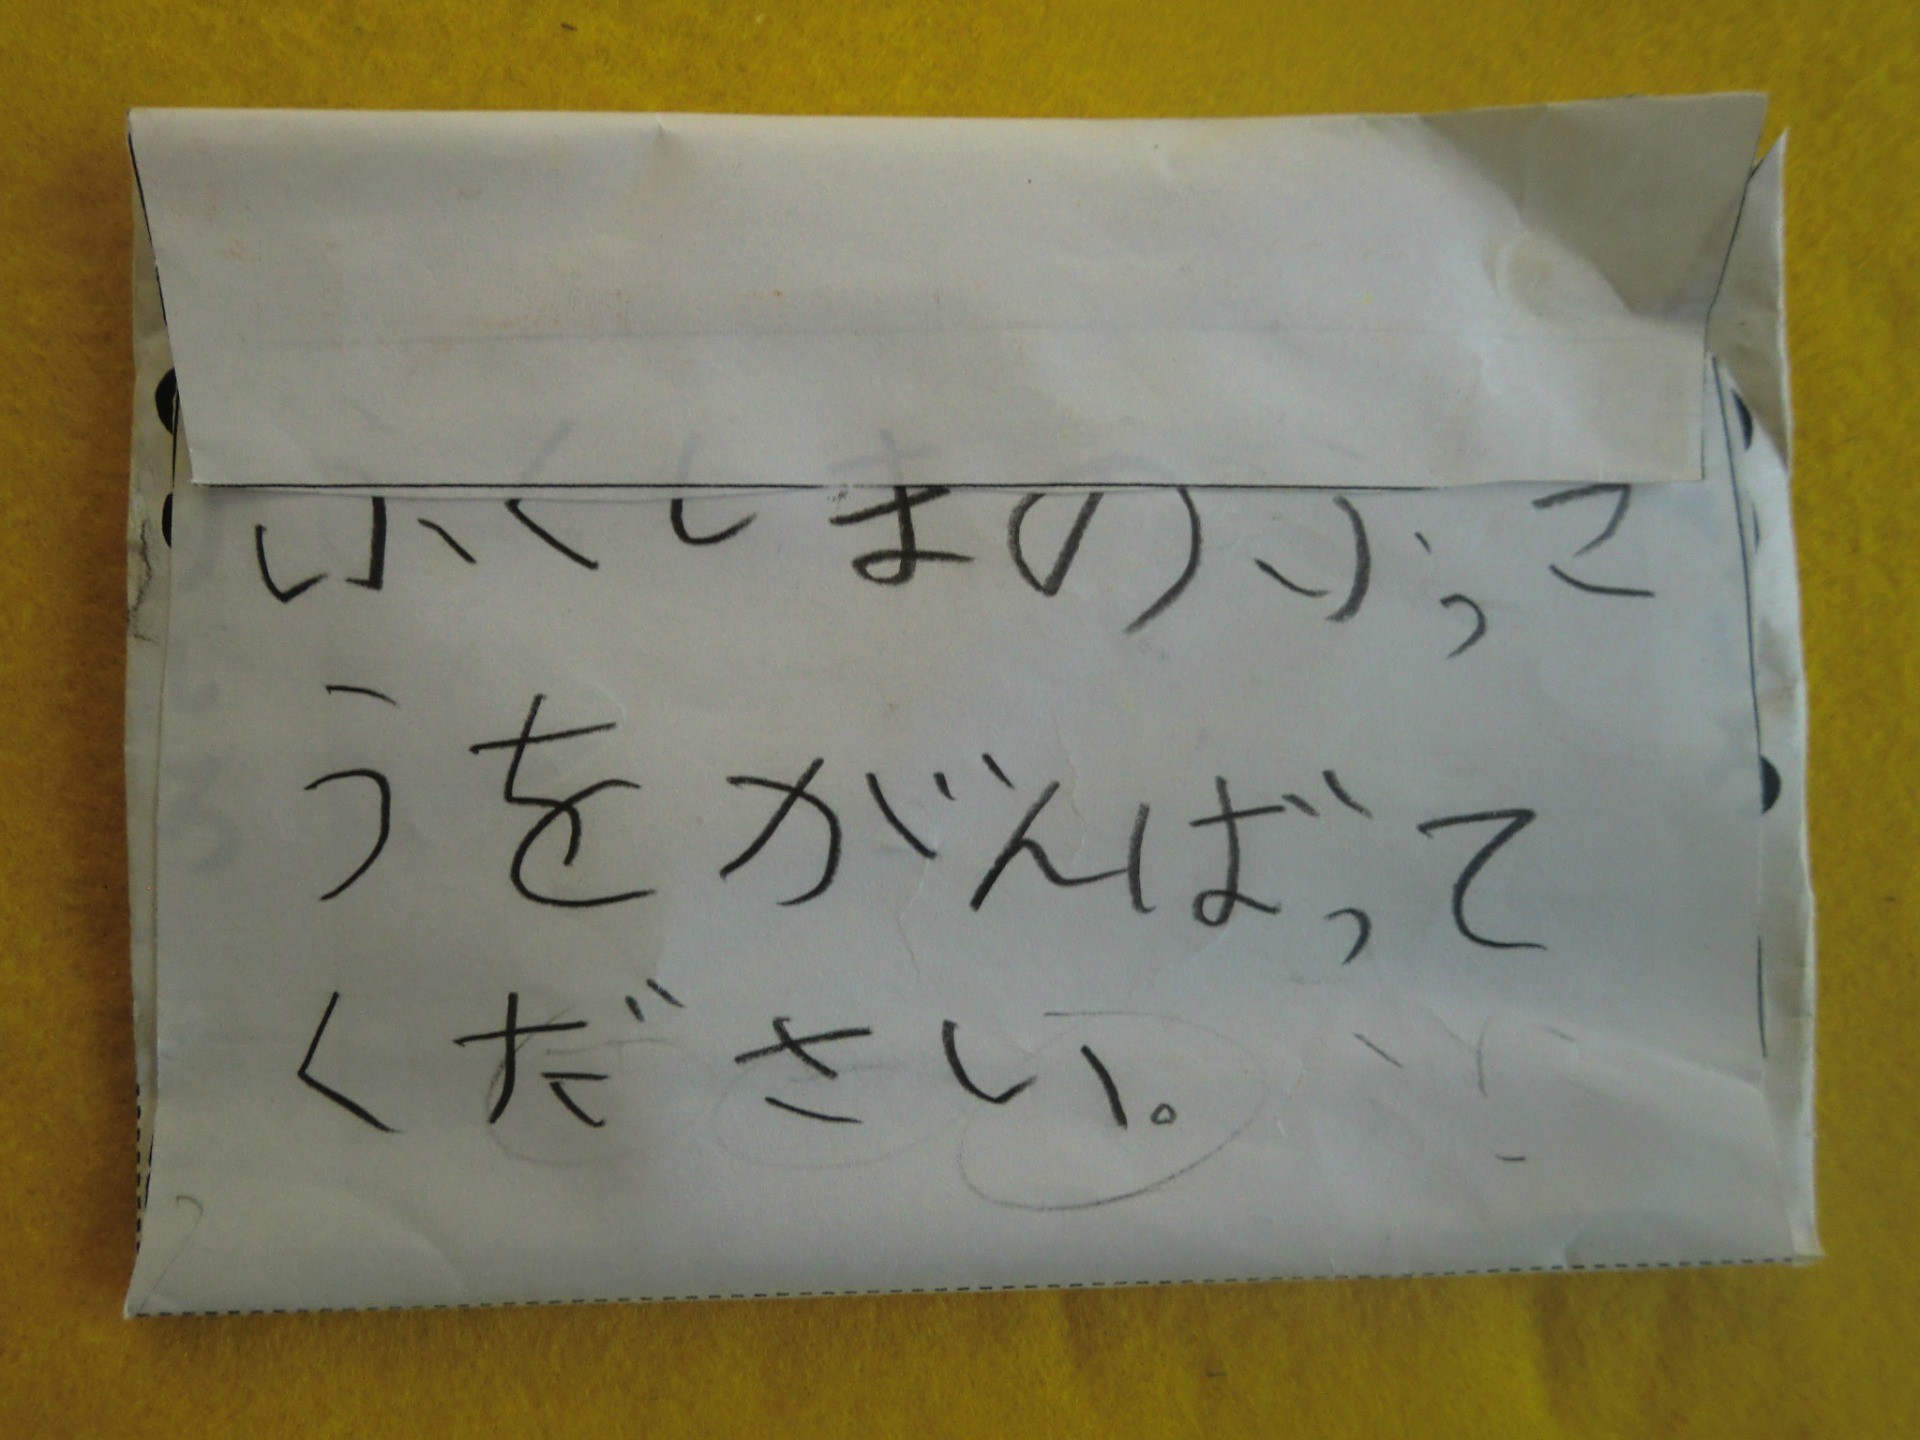 ふくしまのふっこ
うをがんばって
ください。